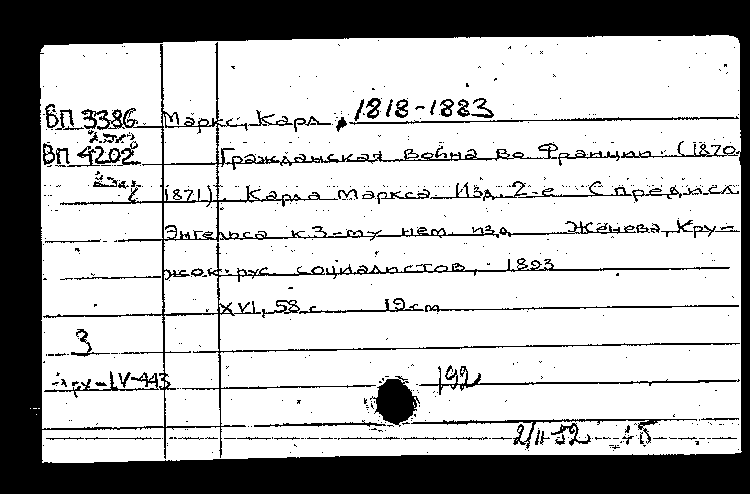 ВП 3386 Маркс, Карл, 1818-1883
2 экз
ВП 4202 Гражданская война во Франции. (1870-
2 экз
1871). Карла Маркса. Изд. 2-е С предисл
Энгельса к 3-му нем. изд. Женева, Кру-
жок рус социалистов, 1893
XVI, 58 с 19 cm
3
IV-443
192
2/II-52